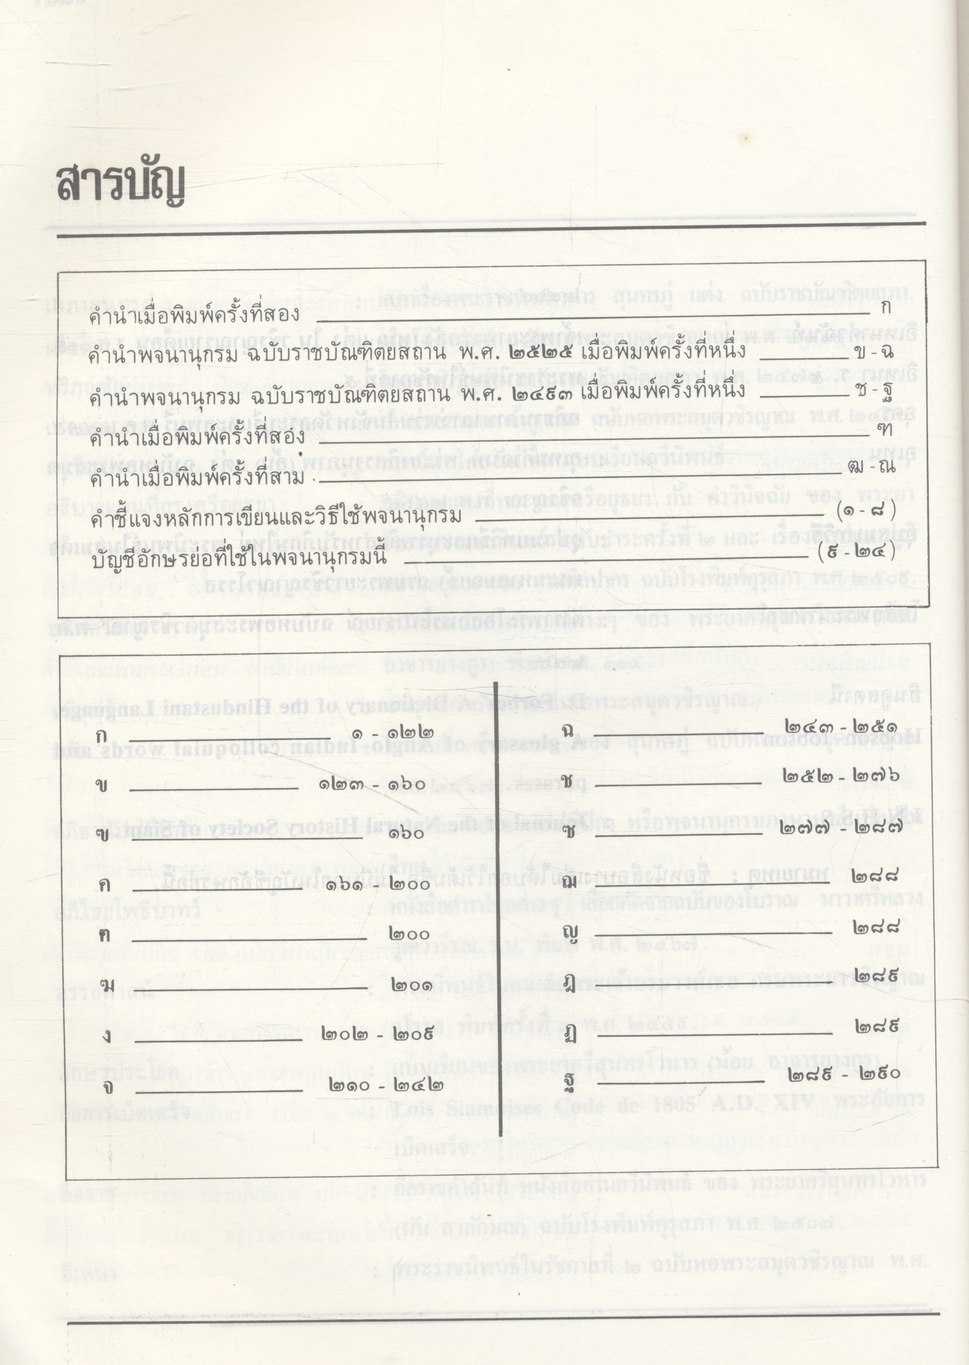 สารบัญ
คำนำเมื่อพิมพ์ครั้งที่สอง ก
คำนำพจนานุกรม ฉบับราชบัณฑิตยสถาน พ.ศ. ๒๕๒๕ เมื่อพิมพ์ครั้งที่หนึ่ง ข - ฉ
คำนำพจนานุกรม ฉบับราชบัณฑิตยสถาน พ.ศ. ๒๔๙๓ เมื่อพิมพ์ครั้งที่หนึ่ง ช - ฐ
คำนำเมื่อพิมพ์ครั้งที่สอง ฑ
คำนำเมื่อพิมพ์ครั้งที่สาม ฒ - ณ
คำชี้แจงหลักการเขียนและวิธีใช้พจนานุกรม (๑ - ๘)
บัญชีอักษรย่อที่ใช้ในพจนานุกรมนี้ (๙ - ๒๔)
ก ๑ - ๑๒๒
ข ๑๒๓ - ๑๖๐
ฃ ๑๖๐
ค ๑๖๑ - ๒๐๐
ฅ ๒๐๐
ฆ ๒๐๑
ง ๒๐๒ - ๒๐๙
จ ๒๑๐ - ๒๔๒
ฉ ๒๔๓ - ๒๕๑
ช ๒๕๒ - ๒๗๖
ซ ๒๗๗ - ๒๘๗
ฌ ๒๘๘
ญ ๒๘๘
ฎ ๒๘๙
ฏ ๒๘๙
ฐ ๒๘๙ - ๒๙๐